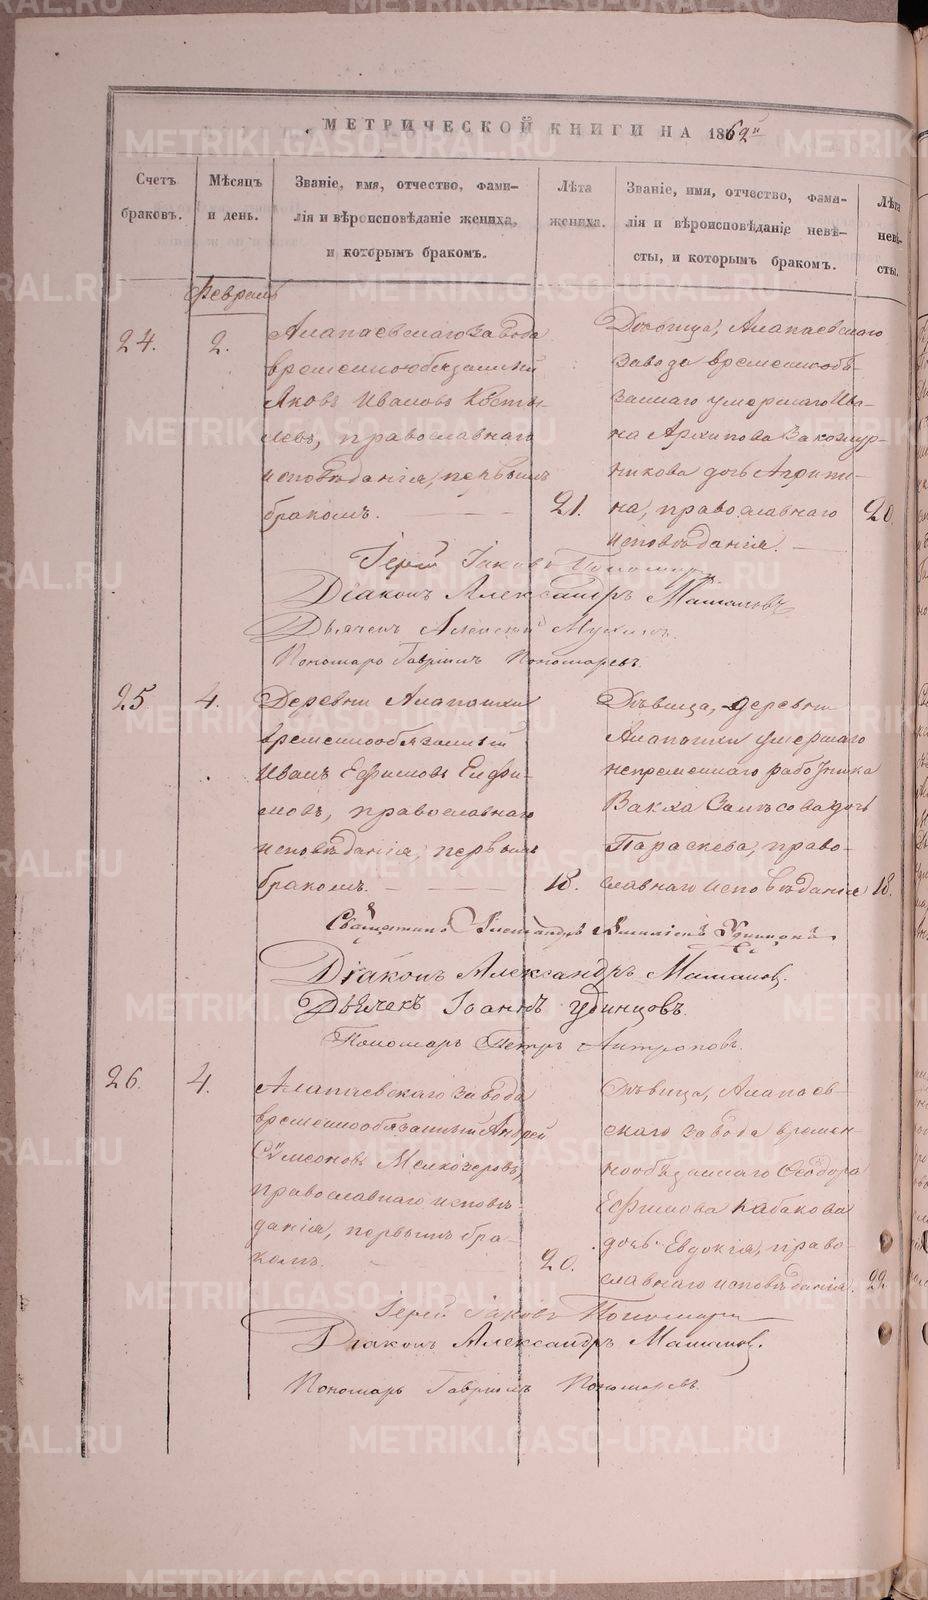 МЕТРИЧЕСКОЙ КНИГИ НА 1862й
Счетъ браковъ.
Мѣсяцъ и день.
Званіе, имя, отчество, фами-
лія и вѣроисповѣданіе жениха,
и которымъ бракомъ.
Лѣта жениха.
Званіе, имя, отчество, фами-
лія и вѣроисповѣданіе невѣ-
сты, и которымъ бракомъ.
Лѣта невѣ-
сты.
Февраль
24.
2.
Алапаевскаго завода
временнообязанный
Яковъ Ивановъ
левъ, православнаго
исповѣданія, первымъ
бракомъ.
21.
Дѣвица, Алапаевскаго
завода временнообя-
заннаго умершаго Ива-
на Архипова Закожур-
никова дочь Агрипи-
на, православнаго
исповѣданія.
20.
Іерей Іаковъ Пономаревъ
Діаконъ Александръ Мамановъ
Дьячекъ Алексій
Пономарь Гавріилъ Пономаревъ.
25.
4.
Деревни Алапашки
временнообязанный
Иванъ Ефимовъ Елфи-
мовъ, православнаго
исповѣданія, первымъ
бракомъ.
18.
Дѣвица, деревни
Алапашки умершаго
непременнаго работника
Вакха дочь
Параскева, право-
славнаго исповѣданія
18.
Священникъ Александръ
Діаконъ Александръ Мамановъ.
Дьячекъ Іоаннъ Удинцовъ.
Пономарь Петръ Антроповъ.
26.
4.
Алапаевскаго завода
временнообязанный Андрей
Сѵмеоновъ Мелкозеровъ,
православнаго исповѣ-
данія, первымъ бра-
комъ.
20.
Дѣвица, Алапаев-
скаго завода времен-
нообязаннаго Ѳеодора
Ефимова Кабакова
дочь Евдокія, право-
славнаго исповѣданія.
22
Іерей Іаковъ Пономаревъ
Діаконъ Александръ Мамановъ.
Пономарь Гавріилъ Пономаревъ.
METRIKI.GASO-URAL.RU